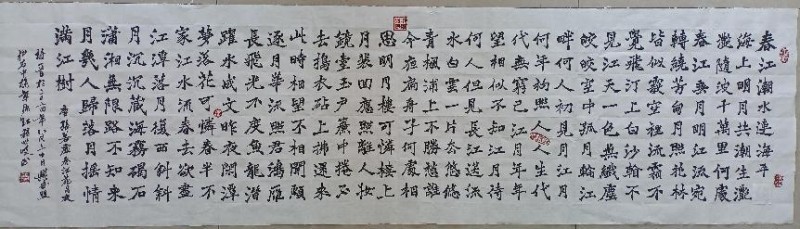 春江潮水連海平
海上明月共潮生灧
灧隨波千萬里何處
春江無月明江流宛
轉繞芳甸月照花林
皆似霰空裡流霜不
覺飛汀上白沙看不
見江天一色無纖塵
皎皎空中孤月輪江
畔何人初見月江月
何年初照人人生代
代無窮已江月年年
望相似不知江月待
何人但見長江送流
水白雲一片去悠悠
青楓浦上不勝愁誰
今夜扁舟子何處相
思明月樓可憐樓上
月裴回應照離人妝
鏡臺玉戶簾中捲不
去搗衣砧上拂還來
此時相望不相聞願
逐月華流照君鴻雁
長飛光不度魚龍潛
躍水成文昨夜閑潭
夢落花可憐春半不
家江水流春去欲盡
江潭落月復西斜斜
月沉沉藏海霧碣石
瀟湘無限路不知乘
月幾人歸落月搖情
滿江樹
唐張若虛春江花月夜